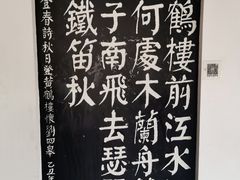 鶴樓前江水
何處木蘭舟
子南飛去瑟
鐵笛秋
春詩秋日登黃鶴樓懷劉四皋 乙丑